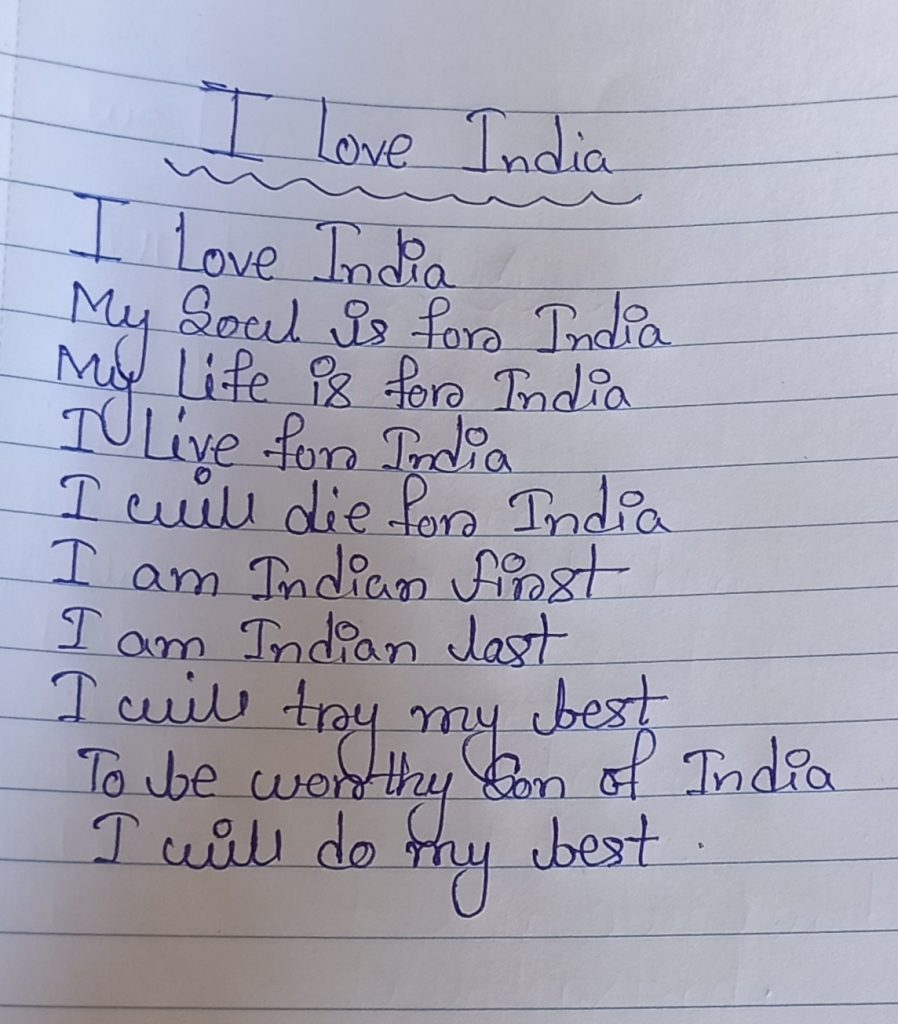 I Love India
I Love India
My Soul is for India
My Life is for India
I Live for India
I will die for India
I am Indian first
I am Indian last
I will try my best
To be worthy Son of India
I will do my best .